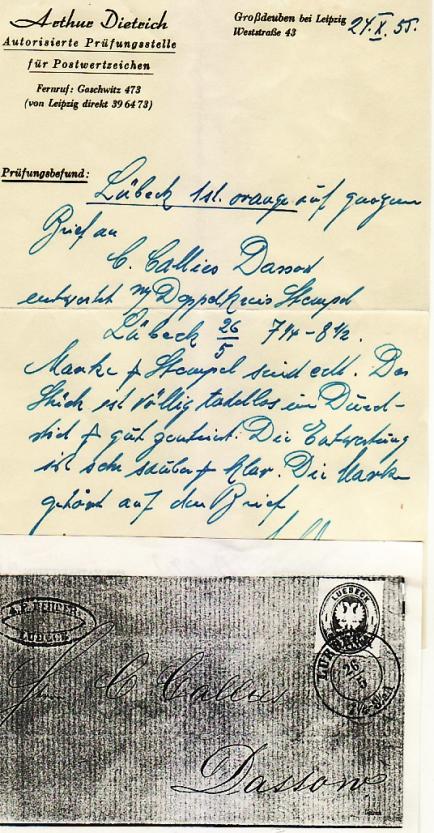 Arthur Dietrich
Autorisierte Prüfungsstelle
für Postwertzeichen
Fernruf: Gaschwitz 473
(von Leipzig direkt 39 64 73)
Großdeuben bei Leipzig
Weststraße 43
24.X.55.
Prüfungsbefund:
Lübeck 1 st. orange auf ganzem
Brief an
C. Callies Dassow
entwertet m/ Doppelkreis Stempel
Lübeck 26/5 7¼-8½.
Marke & Stempel sind echt. Das
Stück ist völlig tadellos im Durch-
stich & gut zentriert. Die Entwertung
ist sehr sauber & klar. Die Marke
gehört auf den Brief
LUEBECK
LÜBECK
26
5
LUBECK
C Callies
Dassow